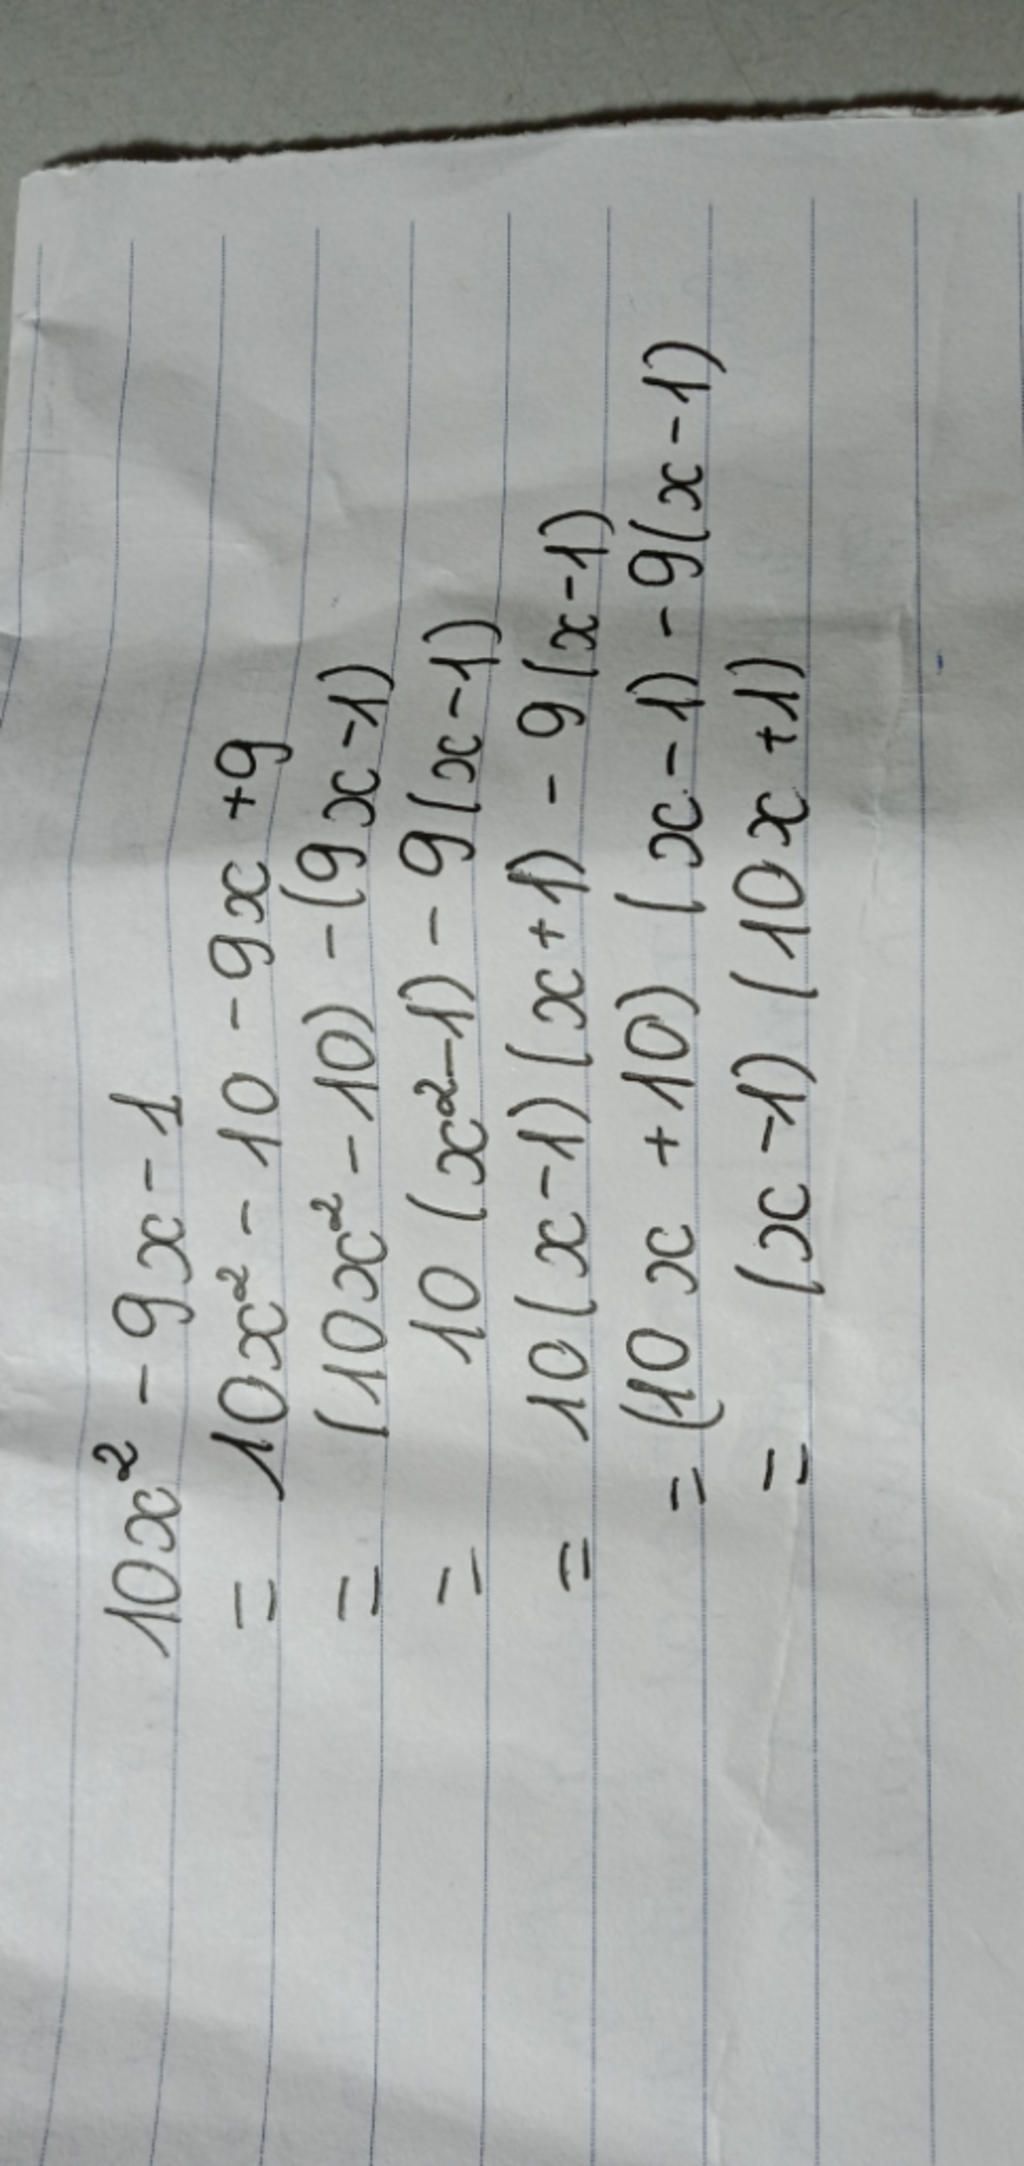 10x² - 9x - 1
= 10x² - 10 - 9x + 9
= (10x² - 10) - (9x - 1)
= 10 (x² - 1) - 9 (x - 1)
= 10 (x - 1) (x + 1) - 9 (x - 1)
= (10x + 10) (x - 1) - 9 (x - 1)
= (x - 1) (10x + 1)